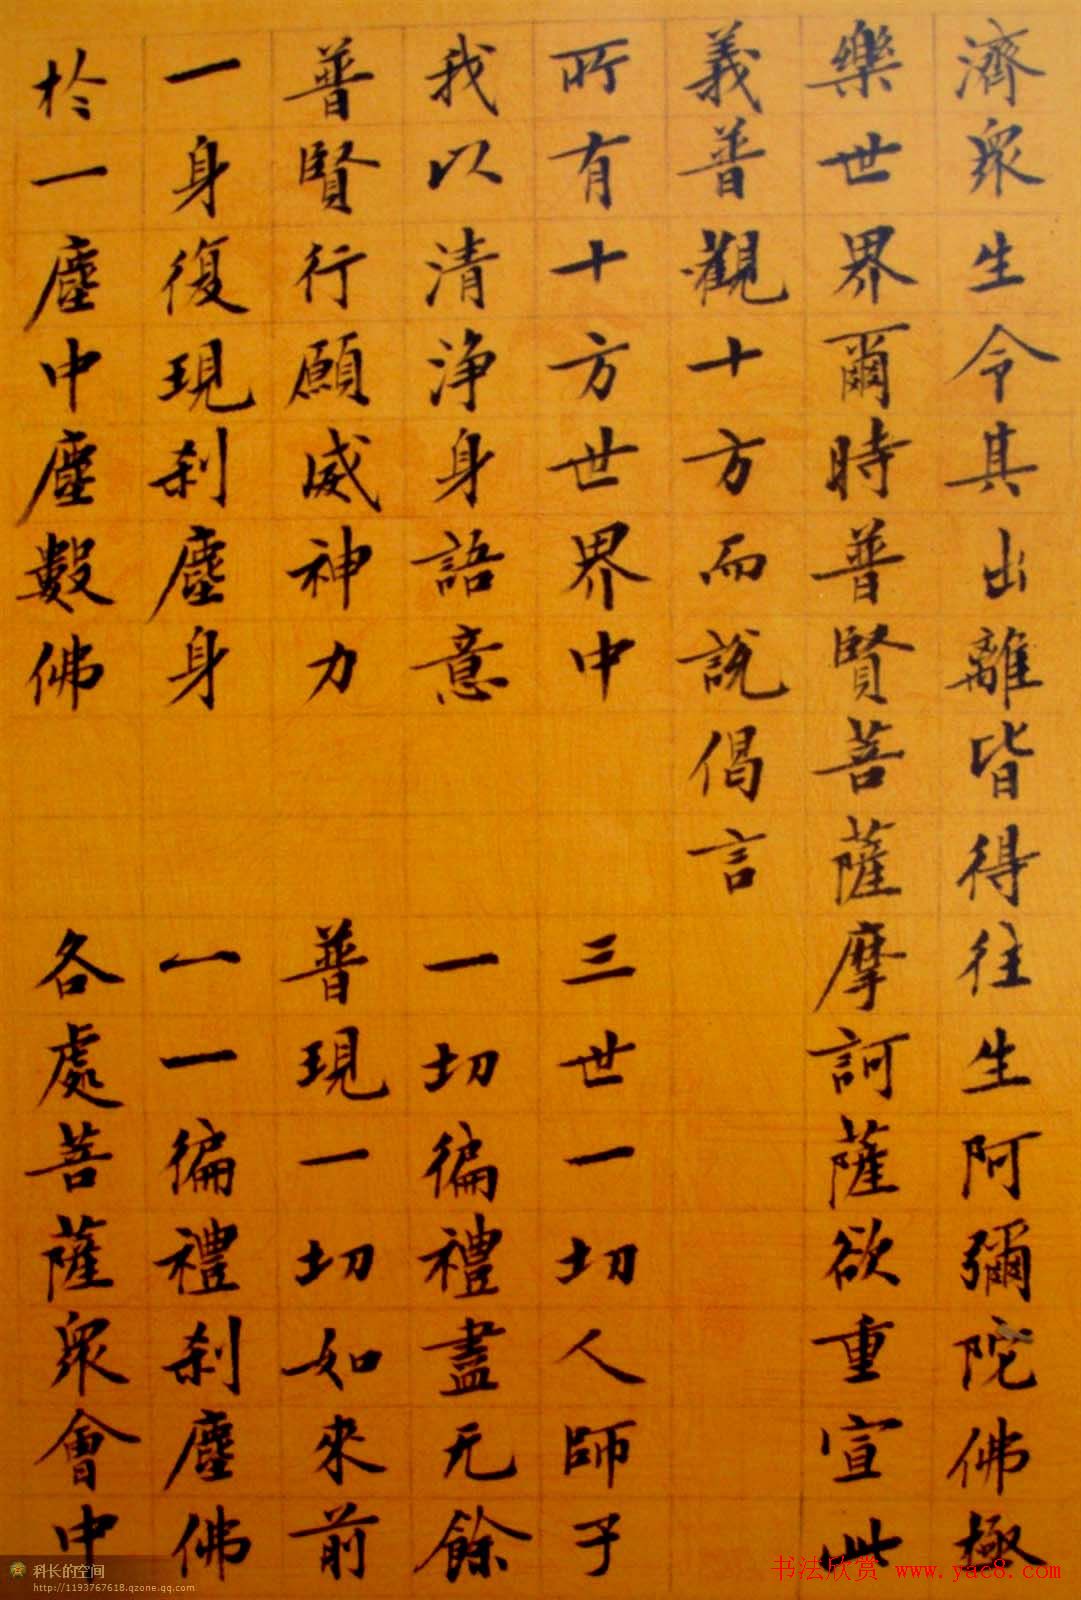 濟眾生令其出離皆得往生阿彌陀佛極
樂世界爾時普賢菩薩摩訶薩欲重宣此
義普觀十方而說偈言
所有十方世界中 三世一切人師子
我以清淨身語意 一切徧禮盡无餘
普賢行願威神力 普現一切如來前
一身復現刹塵身 一一徧禮刹塵佛
於一塵中塵數佛 各處菩薩眾會中
科长的空间
http://1193767618.qzone.qq.com
书法欣赏 www.yac8.com